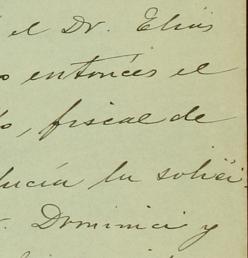 el Dr. Elías
entonces el
, fiscal de
lucía la solici
Dominici y